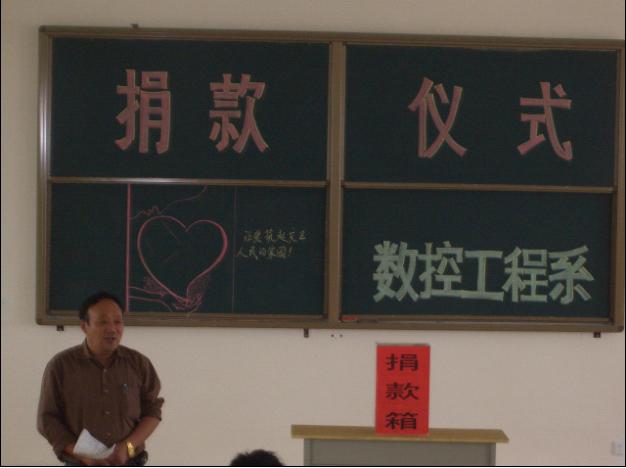 捐款仪式
让爱筑起灾区
人民的家园!
数控工程系
捐款箱